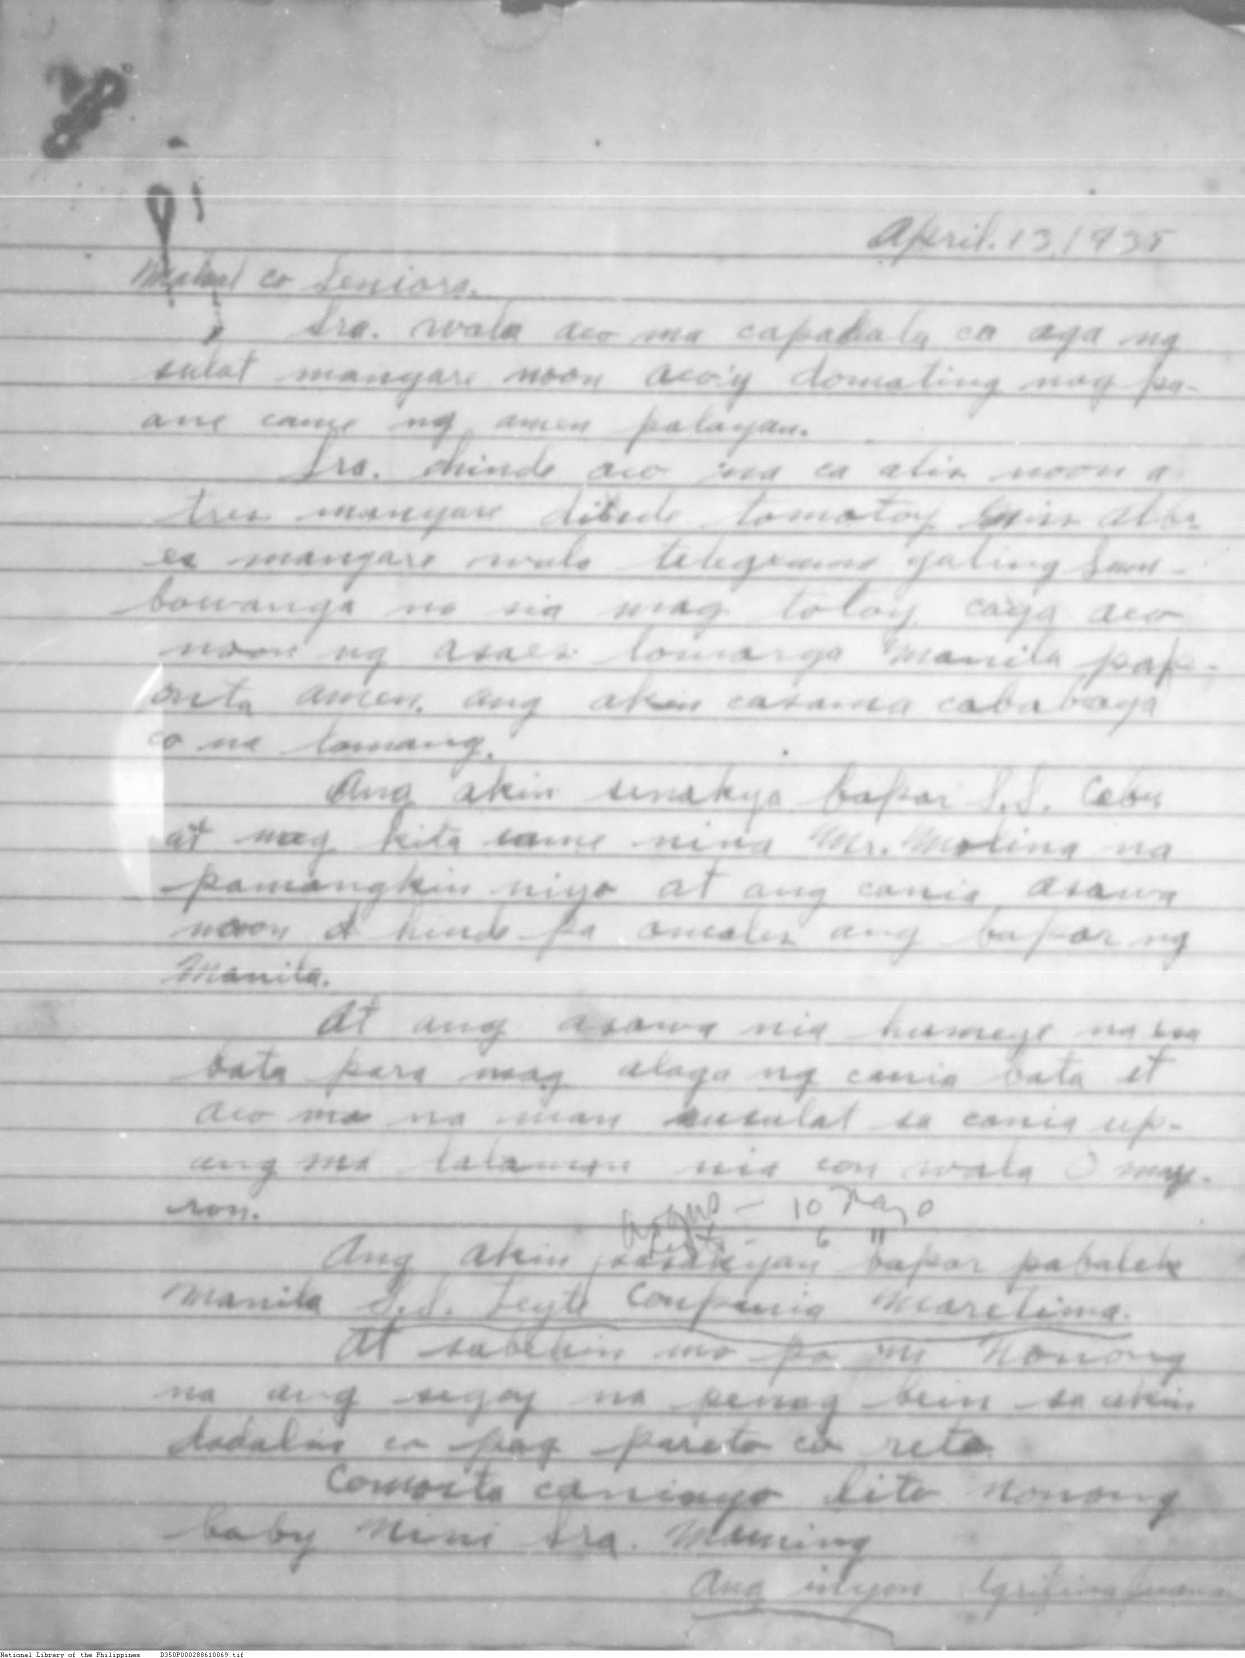 April. 13, 1935
Mahal co Seniora.
Sra. wala aco ma capadala ca aga ng
sulat mangare noon aco'y domating nag pa-
ane came ng amen palayan.
Sra. hinde aco na ca alis noon a
tres mangare hinde tomotoy Miss Albr-
es mangare wala telegrama galing Sam-
bowanga na sia mag toloy caya aco
noon ng asaes lomarga Manila pap-
onta amen. ang akin casama cababaya
co na lomang.
Ang akin senakya bapor S.S. Cebu
at nag kita came nina Mr. Molina na
pamangkin niyo at ang cania asawa
noon d hinde pa omales ang bapor ng
Manila.
At ang asawa nia humege na isa
bata para mag alaga ng cania bata at
aco ma na man susulat sa cania up-
ang ma lalaman nia con wala O may-
ron.
— 10 Mayo
6 "
Ang akin sasakyan bapor pabalek
Manila S.S. Leyte Compania Maretima.
At sabehin mo pa ni Nonong
na ang segay na penag bein sa akin
dadalin co pag pareto co reto
Comosta caninyo Lito Nonong
baby Nini Sra. Mameng
Ang inyon
National Library of the Philippines D350P000288610069.tif